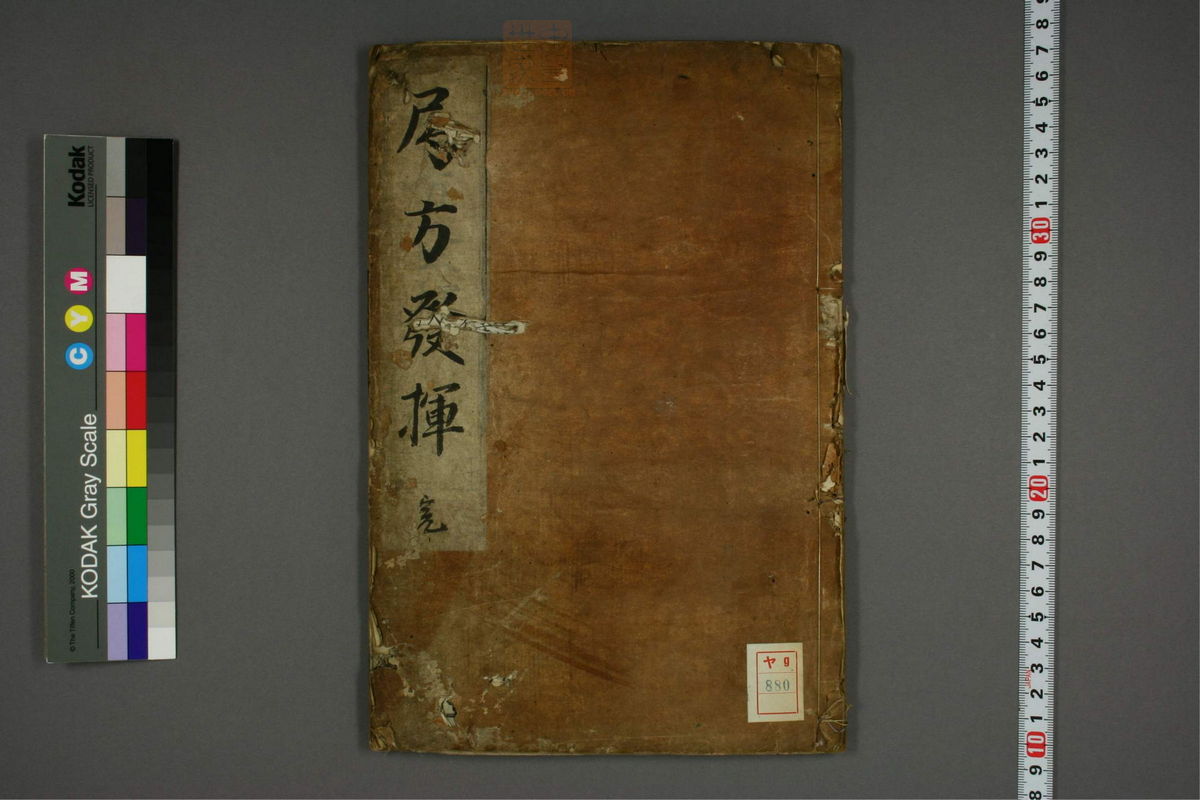 局方發揮
完
ヤ9
880
Kodak
LICENSED PRODUCT
C Y M
KODAK Gray Scale
© The Tiffen Company, 2000
9 8 7 6 5 4 3 2 1 30 9 8 7 6 5 4 3 2 1 20 9 8 7 6 5 4 3 2 1 10 9 8